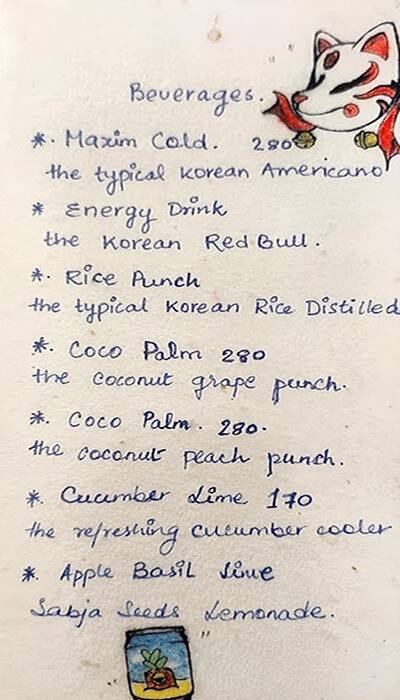 Beverages.
*. Maxim Cold. 280
the typical Korean Americano
* Energy Drink
the Korean Red Bull.
*. Rice Punch
the typical Korean Rice Distilled
*. Coco Palm 280
the coconut grape punch.
*. Coco Palm. 280.
the coconut peach punch.
*. Cucumber Lime 170
the refreshing cucumber cooler
*. Apple Basil Lime
Sabja Seeds Lemonade.